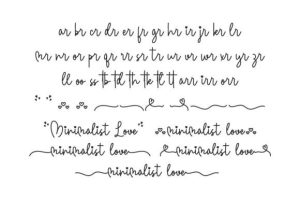 ar br cr dr er fr gr hr ir jr kr lr
mr nr or pr qr rr sr tr ur vr wr xr yr zr
ll oo ss tb td th tk tl tt arr irr orr
"Minimalist Love" minimalist love
minimalist love minimalist love
minimalist love